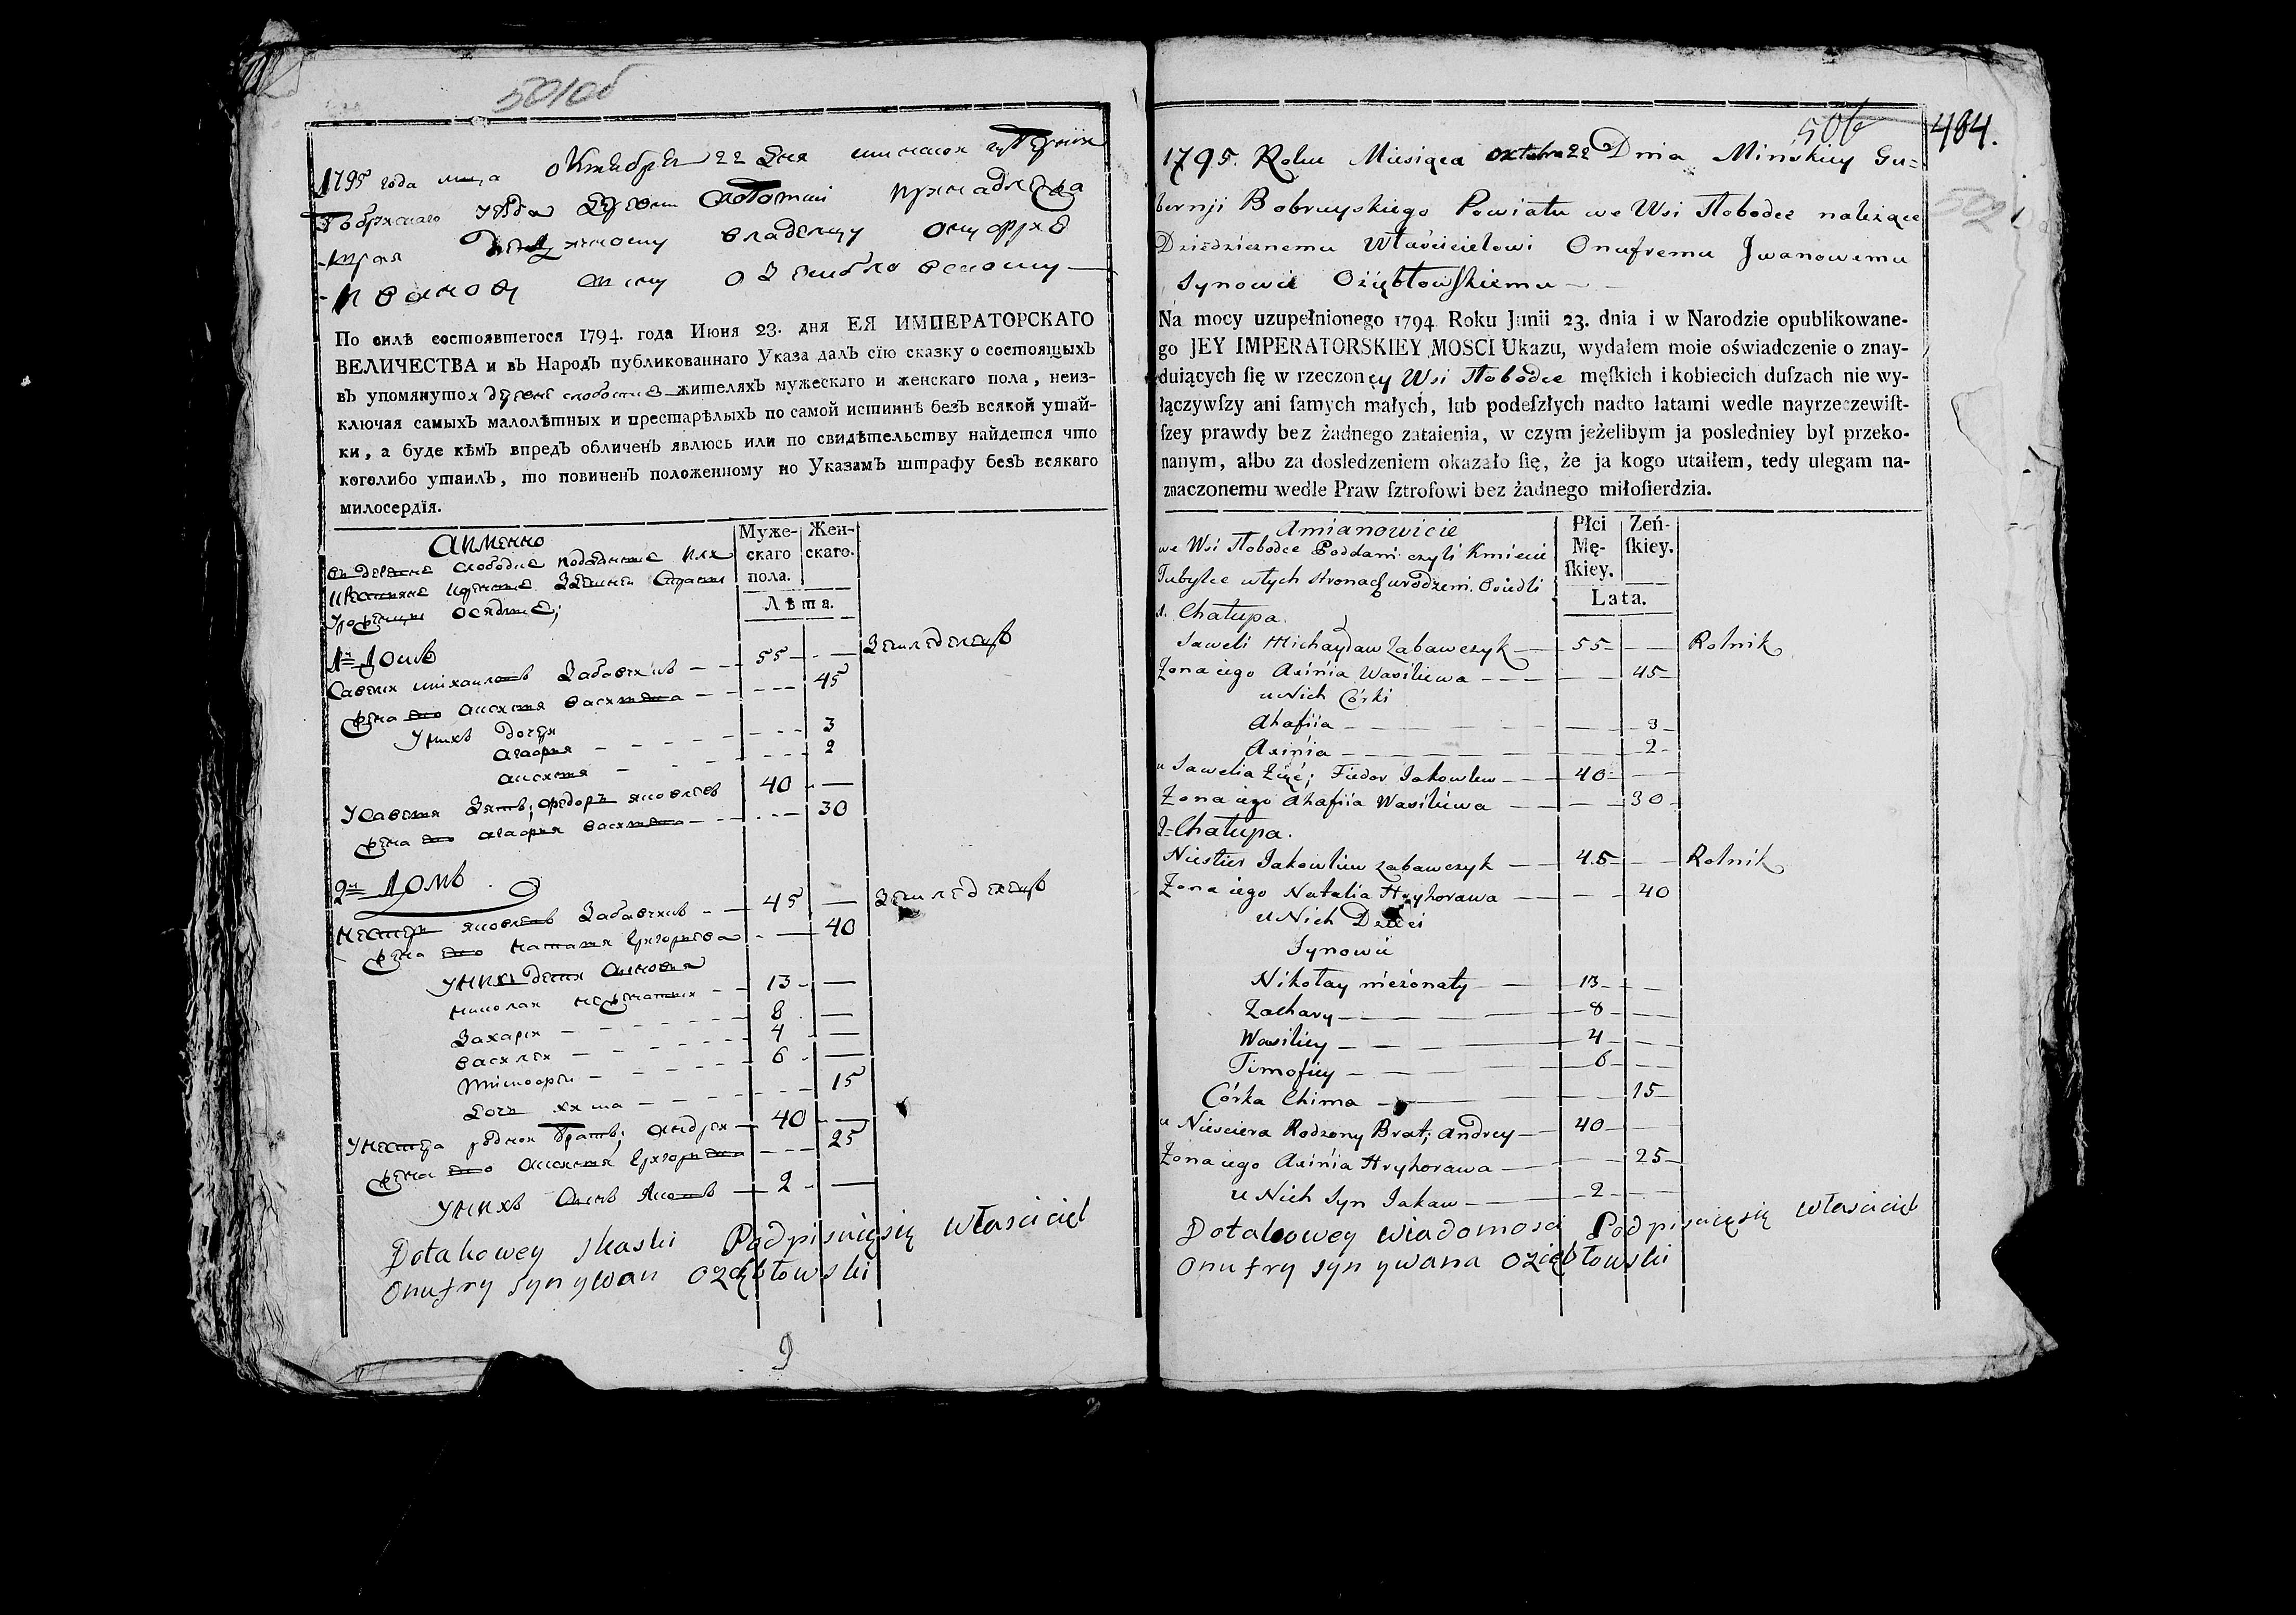 501об
1795 года м-ца октября 22 дня минской губернии
Бобруйскаго уезда деревни Слободки принадлежа-
-щая дедичному владелцу Онуфрею
-Иванову сыну Озембловскому
По силѣ состоявшегося 1794. года Июня 23. дня ЕЯ ИМПЕРАТОРСКАГО
ВЕЛИЧЕСТВА и въ Народъ публикованнаго Указа далъ сїю сказку о состоящыхъ
въ упомянутой деревне слободке жителяхъ мужескаго и женскаго пола, неиз-
ключая самыхъ малолѣтныхъ и престарѣлыхъ по самой истиннѣ безъ всякой утай-
ки, а буде кѣмъ впредъ обличенъ явлюсь или по свидѣтельству найдется что
коголибо утаилъ, то повиненъ положенному по Указамъ штрафу безъ всякаго
милосердїя.
Аимянно
въ деревне слободке подданые или
крестьяне коренные здешней страны
уроженцы оседлые;
Муже-
скаго
пола.
Жен-
скаго.
Лѣта.
1й домъ
Савелий михайловъ Забавчикъ 55 Земледелецъ
жена его Аксинья васильева 45
У нихъ дочери
агафия 3
аксинья 2
У Савелия Зять; федоръ яковлевъ 40
жена его агафия васильева 30
2й домъ
Нестеръ яковлевъ Забавчикъ 45 Земледелецъ
жена его Наталя Григорьева 40
У нихъ дети Сыновья
николай неженатый 13
Захарий 8
василей 4
тимофей 6
дочь химa 15
У Нестера родной братъ; андрей 40
жена его Аксинья Григорьева 25
У нихъ Сынъ Яковъ 2
Dotakowey skaski Podpisuięsię własciciel
Onufry syn ywan Oziębłowski
9
506
464.
502
1795. Roku Miesiąca Oktobra 22 Dnia Mińskiey Gu=
bernji Bobruyskiego Powiatu we Wsi Słobodce należące
Dziedzicznemu Właścicielowi Onufremu Jwanowemu
Synowie Oziębłowskiemu
Na mocy uzupełnionego 1794 Roku Junii 23. dnia i w Narodzie opublikowane-
go JEY IMPERATORSKIEY MOSCI Ukazu, wydałem moie oświadczenie o znay-
duiących ſię w rzeczoney Wsi Słobodce męſkich i kobiecich duſzach nie wy-
łączywſzy ani ſamych małych, lub podeſzłych nadto latami wedle nayrzeczewiſt-
ſzey prawdy bez żadnego zataienia, w czym jeżelibym ja posledniey był przeko-
nanym, albo za dosledzeniem okazało ſię, że ja kogo utaiłem, tedy ulegam na-
znaczonemu wedle Praw ſztrofowi bez żadnego miłoſierdzia.
Amianowicie
we Wsi Słobodce Poddani czyli Kmiecie
Tubylce wtych stronach urodzeni. Osiedli
Płci
Mę-
ſkiey.
Zeń-
ſkiey.
Lata.
1. Chałupa.
Saweli Michayław Zabawczyk 55 Rolnik
Żona iego Axinia Wasilewa 45
u Nich Córki
Ahafiia 3
Axinia 2
u Sawelia Zięć; Fiedor Jakowlew 40
Żona iego Ahafiia Wasilewa 30
2= Chałupa.
Niestier Jakowliew Zabawczyk 45 Rolnik
Żona iego Natalia Hryhorawa 40
u Nich Dzieci
Synowie
Nikołay nieżonaty 13
Zachary 8
Wasiliey 4
Timofiey 6
Córka Chima 15
u Niesciera Rodzony Brat; Andrey 40
Żona iego Axinia Hryhorawa 25
u Nich Syn Jakaw 2
Dotakowey wiadomosci Podpisuięsię własciciel
Onufry syn ywana Oziębłowski